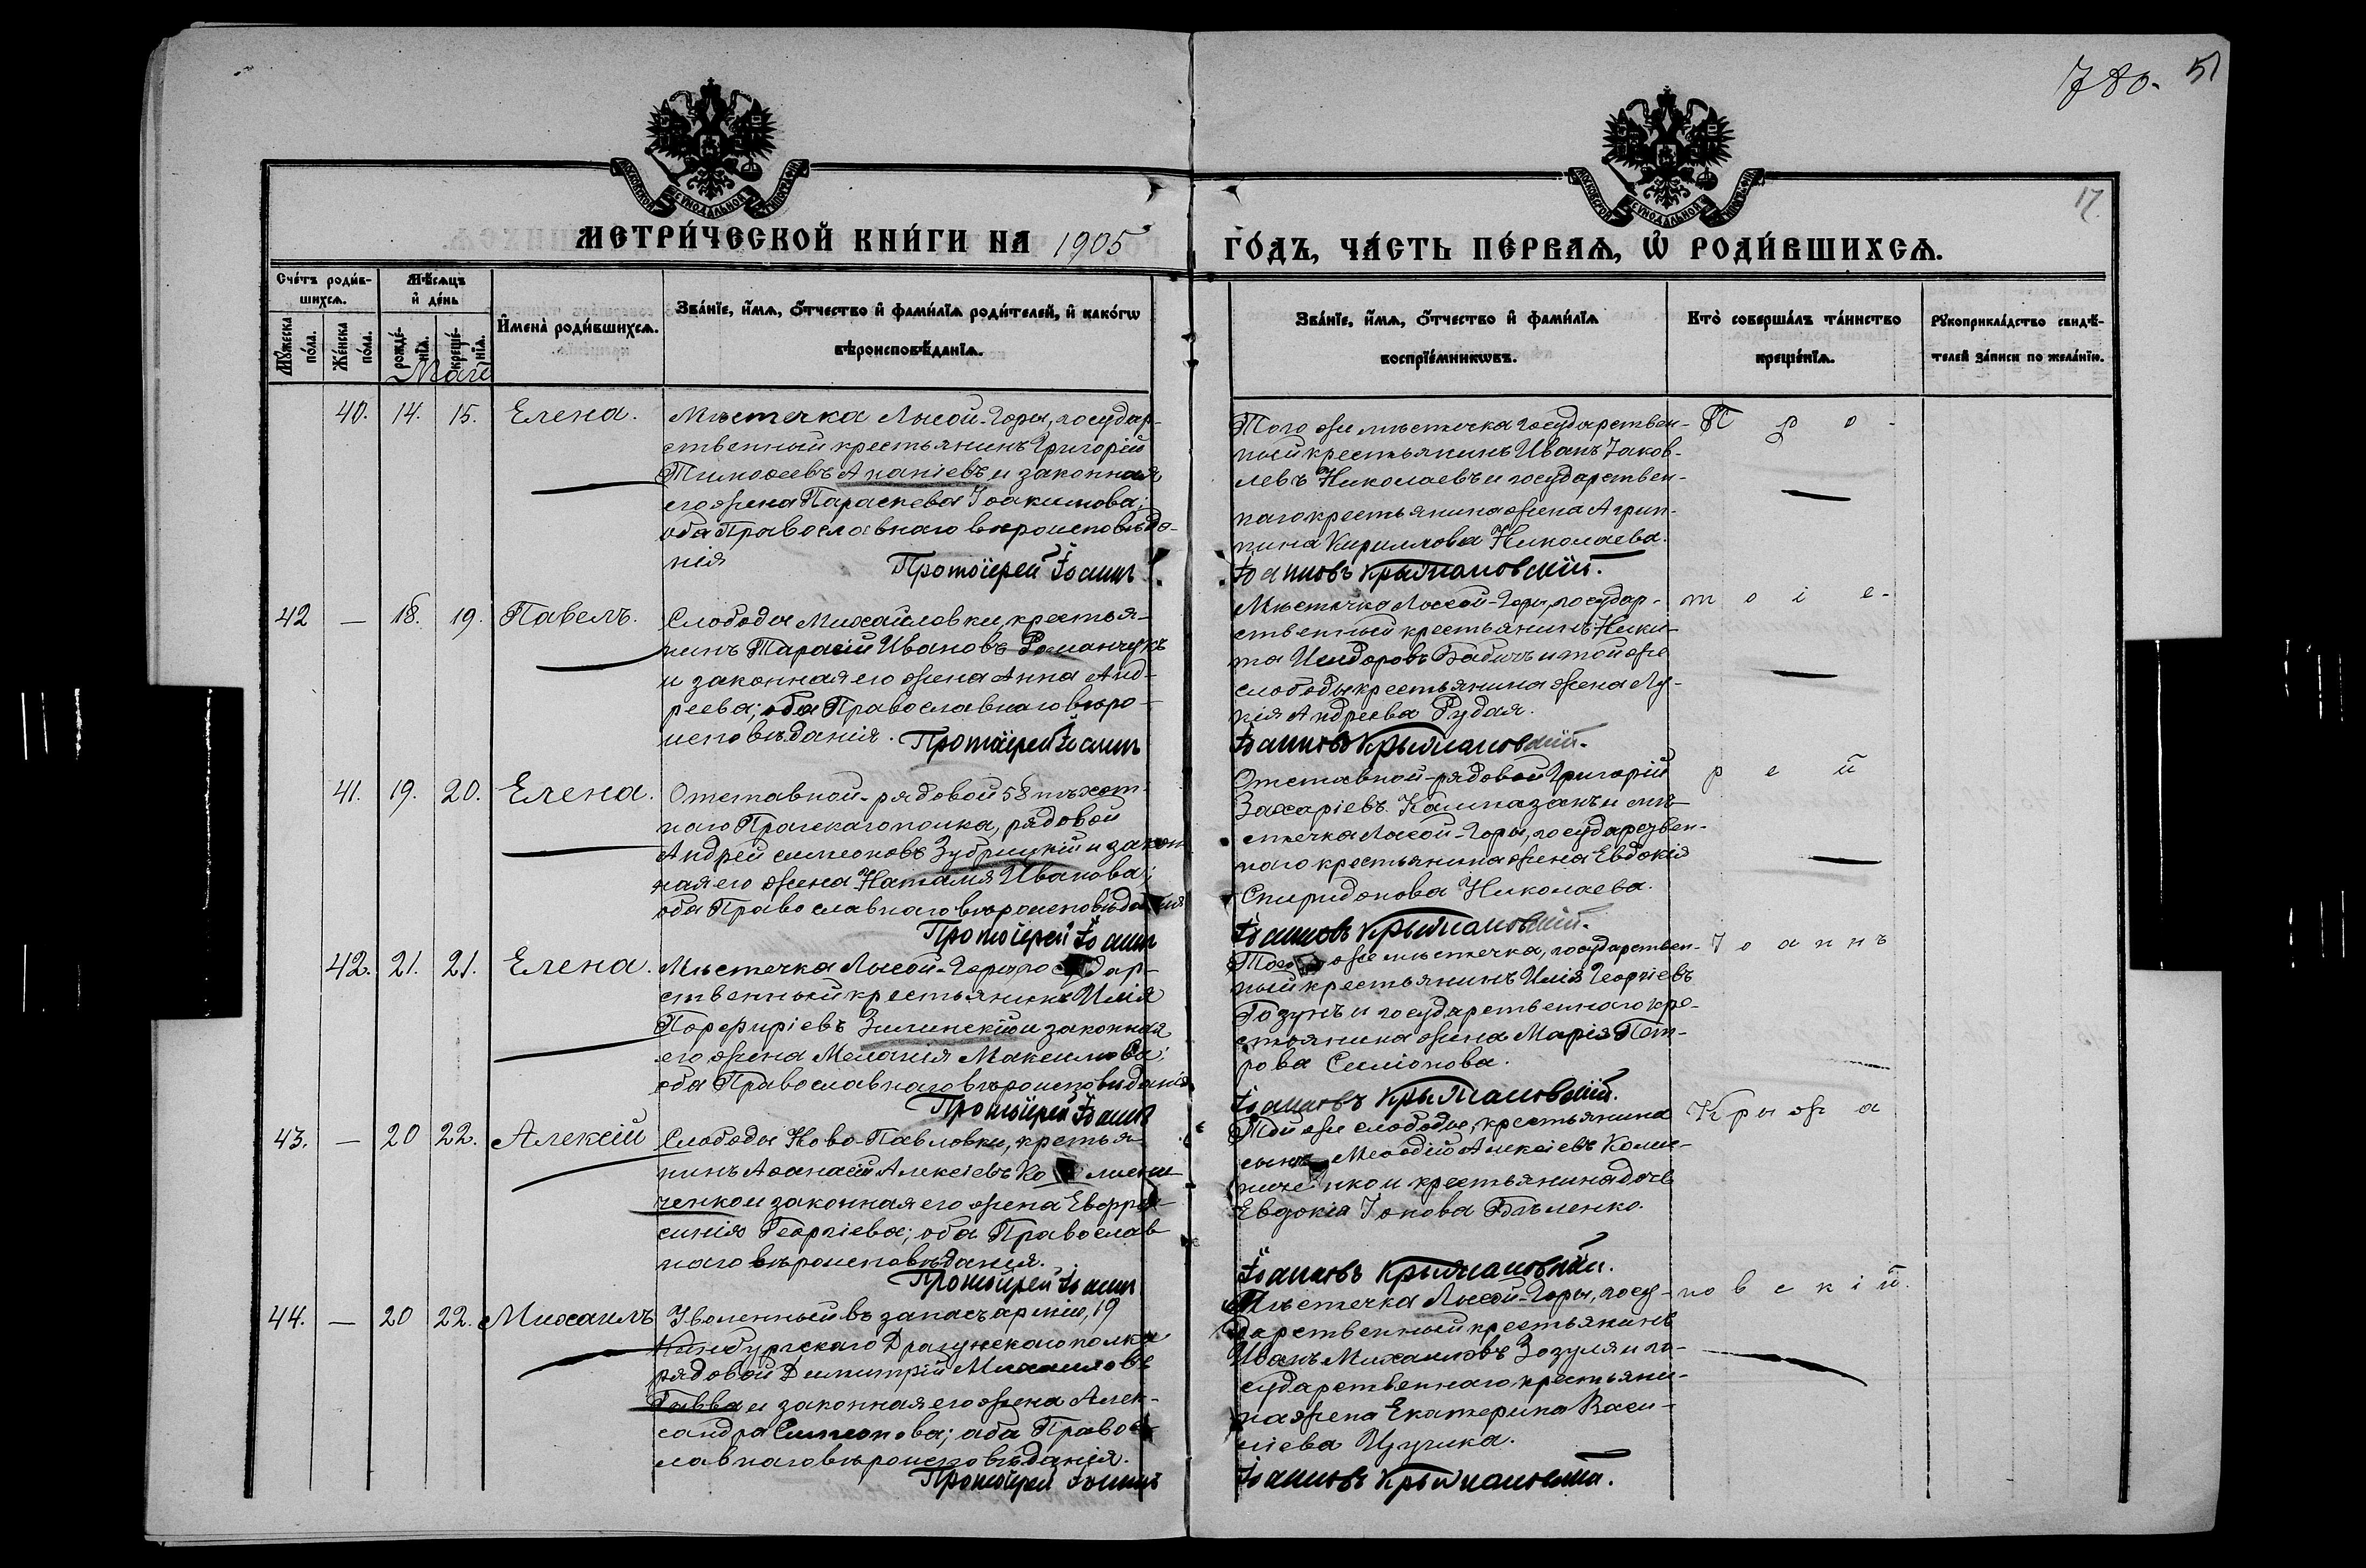 780. 51
17
МОСКОВСКОЙ СѴНОДАЛЬНОЙ ТИПОГРАФІИ
МОСКОВСКОЙ СѴНОДАЛЬНОЙ ТИПОГРАФІИ
МЕТРИ́ЧЕСКОЙ КНИ́ГИ НА 1905
ГО́ДЪ, ЧА́СТЬ ПЕ́РВАѦ, Ѡ҆ РОДИ́ВШИХСѦ.
Сче́тъ роди́в-
шихсѧ.
Мꙋ́жеска
по́ла.
Же́нска
по́ла.
Мѣ́сѧцъ
и҆ де́нь
рожде́-
нїѧ.
креще́-
нїѧ.
Май
И҆мена̀ роди́вшихсѧ.
Зва́нїе, и҆́мѧ, ѻ҆́тчество и҆ фами́лїѧ роди́телей, и҆ како́гѡ
вѣроисповѣ́данїѧ.
Зва́нїе, и҆́мѧ, ѻ҆́тчество и҆ фами́лїѧ
воспрїе́мникѡвъ.
Кто̀ соверша́лъ та́инство
креще́нїѧ.
Рꙋкоприкла́дство свидѣ́-
телей за́писи по жела́нїю.
40. 14. 15. Елена.
Мѣстечка Лысой-Горы, государ-
ственный крестьянинъ Григорій
Тимоѳеевъ Ананіевъ и законная
его жена Параскева Іоакимова;
оба Православнаго вѣроисповѣда-
нія
Протоіерей Іоаннъ
Того же мѣстечка государствен-
ный крестьянинъ Иванъ Іаков-
левъ Николаевъ и государствен-
наго крестьянина жена Агрип-
пина Кириллова Николаева.
Іоанновъ Крыжановскій.
П р о -
42 — 18. 19. Павелъ.
Слободы Михайловки, крестья-
нинъ Тарасій Ивановъ Романчукъ
и законная его жена Анна Анд-
реева; оба Православнаго вѣро-
исповѣданія.
Протоіерей Іоаннъ
Мѣстечка Лысой-Горы, государ-
ственный крестьянинъ Ники-
та Исидоровъ Бабичъ и той же
слободы крестьянина жена Лу-
кія Андреева Рудая.
Іоанновъ Крыжановскій.
т о і е -
41. 19. 20. Елена.
Отставной-рядовой 58 пѣхот-
наго Прагскаго полка, рядовой
Андрей Симеоновъ Зубрицкій и закон
ная его жена Наталія Иванова;
оба Православнаго вѣроисповѣданія
Протоіерей Іоаннъ
Отставной-рядовой Григорій
Захаріевъ и мѣ-
стечка Лысой-Горы, государствен-
наго крестьянина жена Евдокія
Спиридонова Николаева.
Іоанновъ Крыжановскій.
р е й
42. 21. 21. Елена.
Мѣстечка Лысой-Горы государ-
ственный крестьянинъ Илія
Порфиріевъ Зилинскій и законная
его жена Меланія Максимова;
оба Православнаго вѣроисповѣданія
Протоіерей Іоаннъ
Того же мѣстечка, государствен-
ный крестьянинъ Илія Георгіевъ
Гозунъ и государственнаго кре-
стьянина жена Марія Пет-
рова Симіонова.
Іоанновъ Крыжановскій.
І о а н н ъ
43. — 20 22. Алексій
Слободы Ново-Павловки, крестья-
нинъ Аѳанасій Алексіевъ Ко лисни
ченко и законная его жена Евфро-
синія Георгіева; оба Православ
наго вѣроисповѣданія.
Протоіерей Іоаннъ
Той же слободы, крестьянина
сынъ Меѳодій Алексіевъ Колис-
ниченко и крестьянина дочь
Евдокія Іонова Бѣленко.
Іоанновъ Крыжановскій.
К р ы ж а
44. — 20 22. Михаилъ
Уволенный въ запасъ арміи, 19
Кинбургскаго Драгунскаго полка
рядовой Димитрій Михаиловъ
Гавва и законная его жена Алек-
сандра Симеонова; оба Правос
лавнаго вѣроисповѣданія.
Протоіерей Іоаннъ
Мѣстечка Лысой-Горы, госу-
дарственный крестьянинъ
Иванъ Михаиловъ Зозуля и го-
сударственнаго крестьяни-
на жена Екатерина Васи-
ліева Цуцика.
Іоанновъ Крыжановскій.
н о в с к і й.